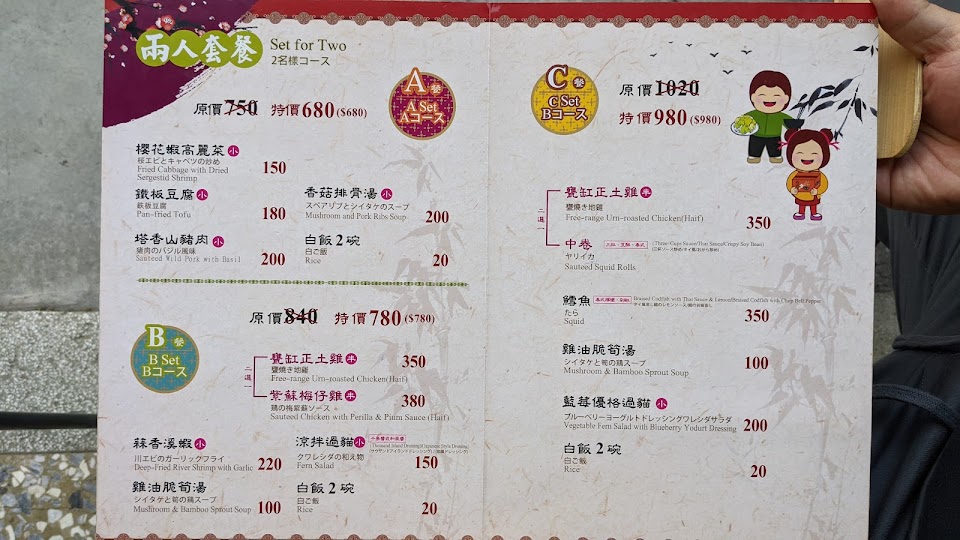 兩人套餐
Set for Two
2名様コース
原價750 特價680($680)
A餐
A Set
Aコース
櫻花蝦高麗菜 小
桜エビとキャベツの炒め
Fried Cabbage with Dried
Sergestid Shrimp
150
鐵板豆腐 小
鉄板豆腐
Pan-fried Tofu
180
香菇排骨湯 小
スペアリブとシイタケのスープ
Mushroom and Pork Ribs Soup
200
塔香山豬肉 小
猪肉のバジル風味
Sauteed Wild Pork with Basil
200
白飯2碗
白ご飯
Rice
20
原價840 特價780($780)
B餐
B Set
Bコース
二選一
甕缸正土雞 半
甕燒き地鶏
Free-range Urn-roasted Chicken(Haif)
350
紫蘇梅仔雞 半
鶏の梅紫蘇ソース
Sauteed Chicken with Perilla & Pium Sauce (Haif)
380
蒜香溪蝦 小
川エビのガーリックフライ
Deep-Fried River Shrimp with Garlic
220
涼拌過貓 小
クワレシダの和え物
Fern Salad
150
雞油脆筍湯
シイタケと筍の鶏スープ
Mushroom & Bamboo Sprout Soup
100
白飯2碗
白ご飯
Rice
20
C餐
C Set
Bコース
原價1020
特價980($980)
二選一
甕缸正土雞 半
甕燒き地鶏
Free-range Urn-roasted Chicken(Haif)
350
中卷
ヤリイカ
Sauteed Squid Rolls
(Three-Cups Sauce/Thai Sauce/Crispy Soy Bean)
鱈魚
たら
Squid
Braised Codfish with Thai Sauce & Lemon/Braised Codfish with Chop Bell Pepper
350
雞油脆筍湯
シイタケと筍の鶏スープ
Mushroom & Bamboo Sprout Soup
100
藍莓優格過貓 小
ブルーベリーヨーグルトドレッシングワレシダサラダ
Vegetable Fern Salad with Blueberry Yodurt Dressing
200
白飯2碗
白ご飯
Rice
20